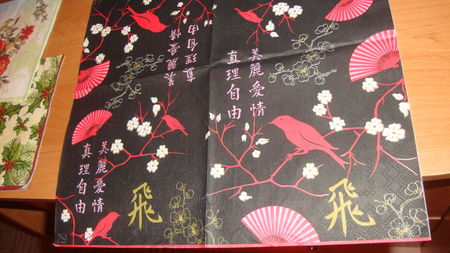 美麗愛情
真理自由
美麗愛情
真理自由
美麗愛情
真理自由
飛
飛